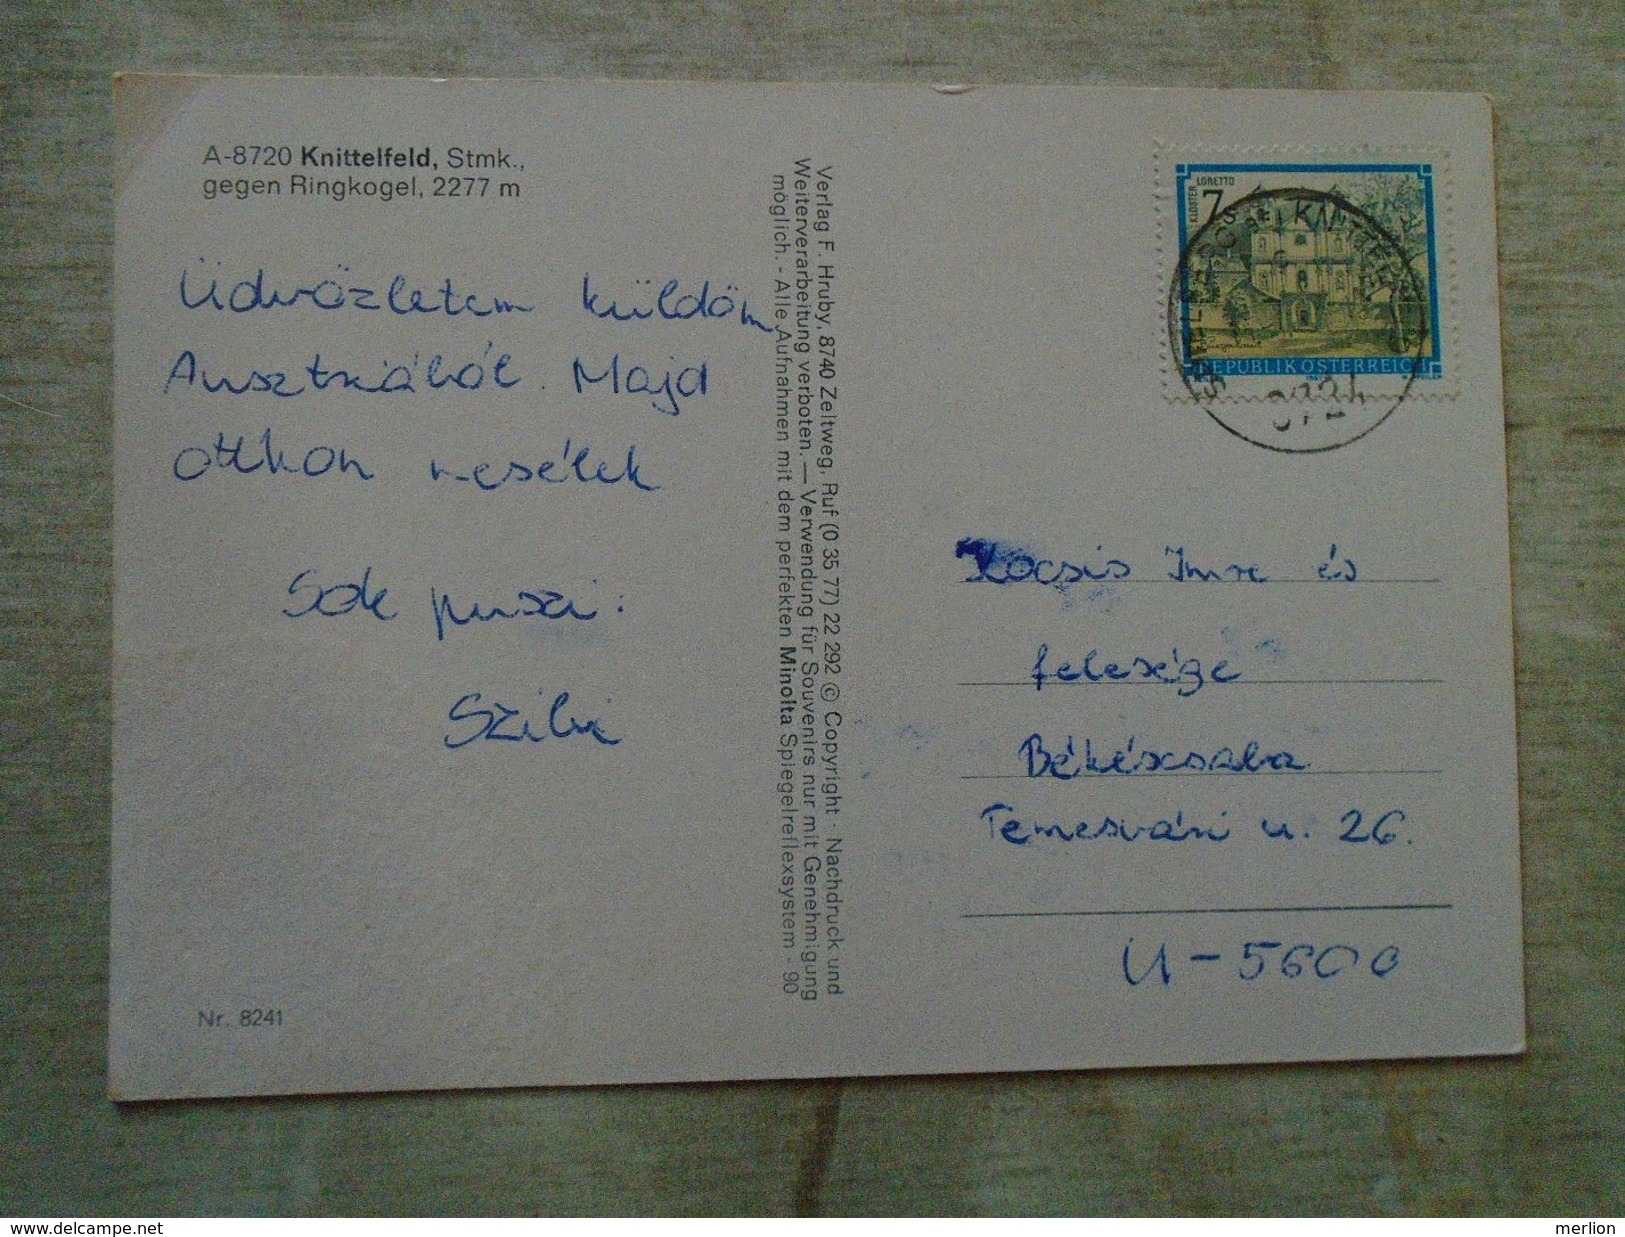 A-8720 Knittelfeld, Stmk.,
gegen Ringkogel, 2277 m
Üdvözletem küldöm
Ausztriából. Majd
otthon mesélek
Sok puszi:
Szilvi
Nr. 8241
Verlag F. Hruby, 8740 Zeltweg, Ruf (0 35 77) 22 292 © Copyright · Nachdruck und
Weiterverarbeitung verboten. — Verwendung für Souvenirs nur mit Genehmigung
möglich. - Alle Aufnahmen mit dem perfekten Minolta Spiegelreflexsystem - 90
KLOSTER
LORETTO
7 S
REPUBLIK ÖSTERREICH
BEI KNITTELFELD
Kocsis Imre és
felesége
Békéscsaba
Temesvári u. 26.
U-5600
www.delcampe.net
merlion